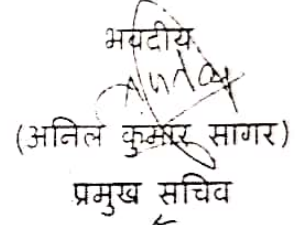 भवदीय
(अनिल कुमार सागर)
प्रमुख सचिव